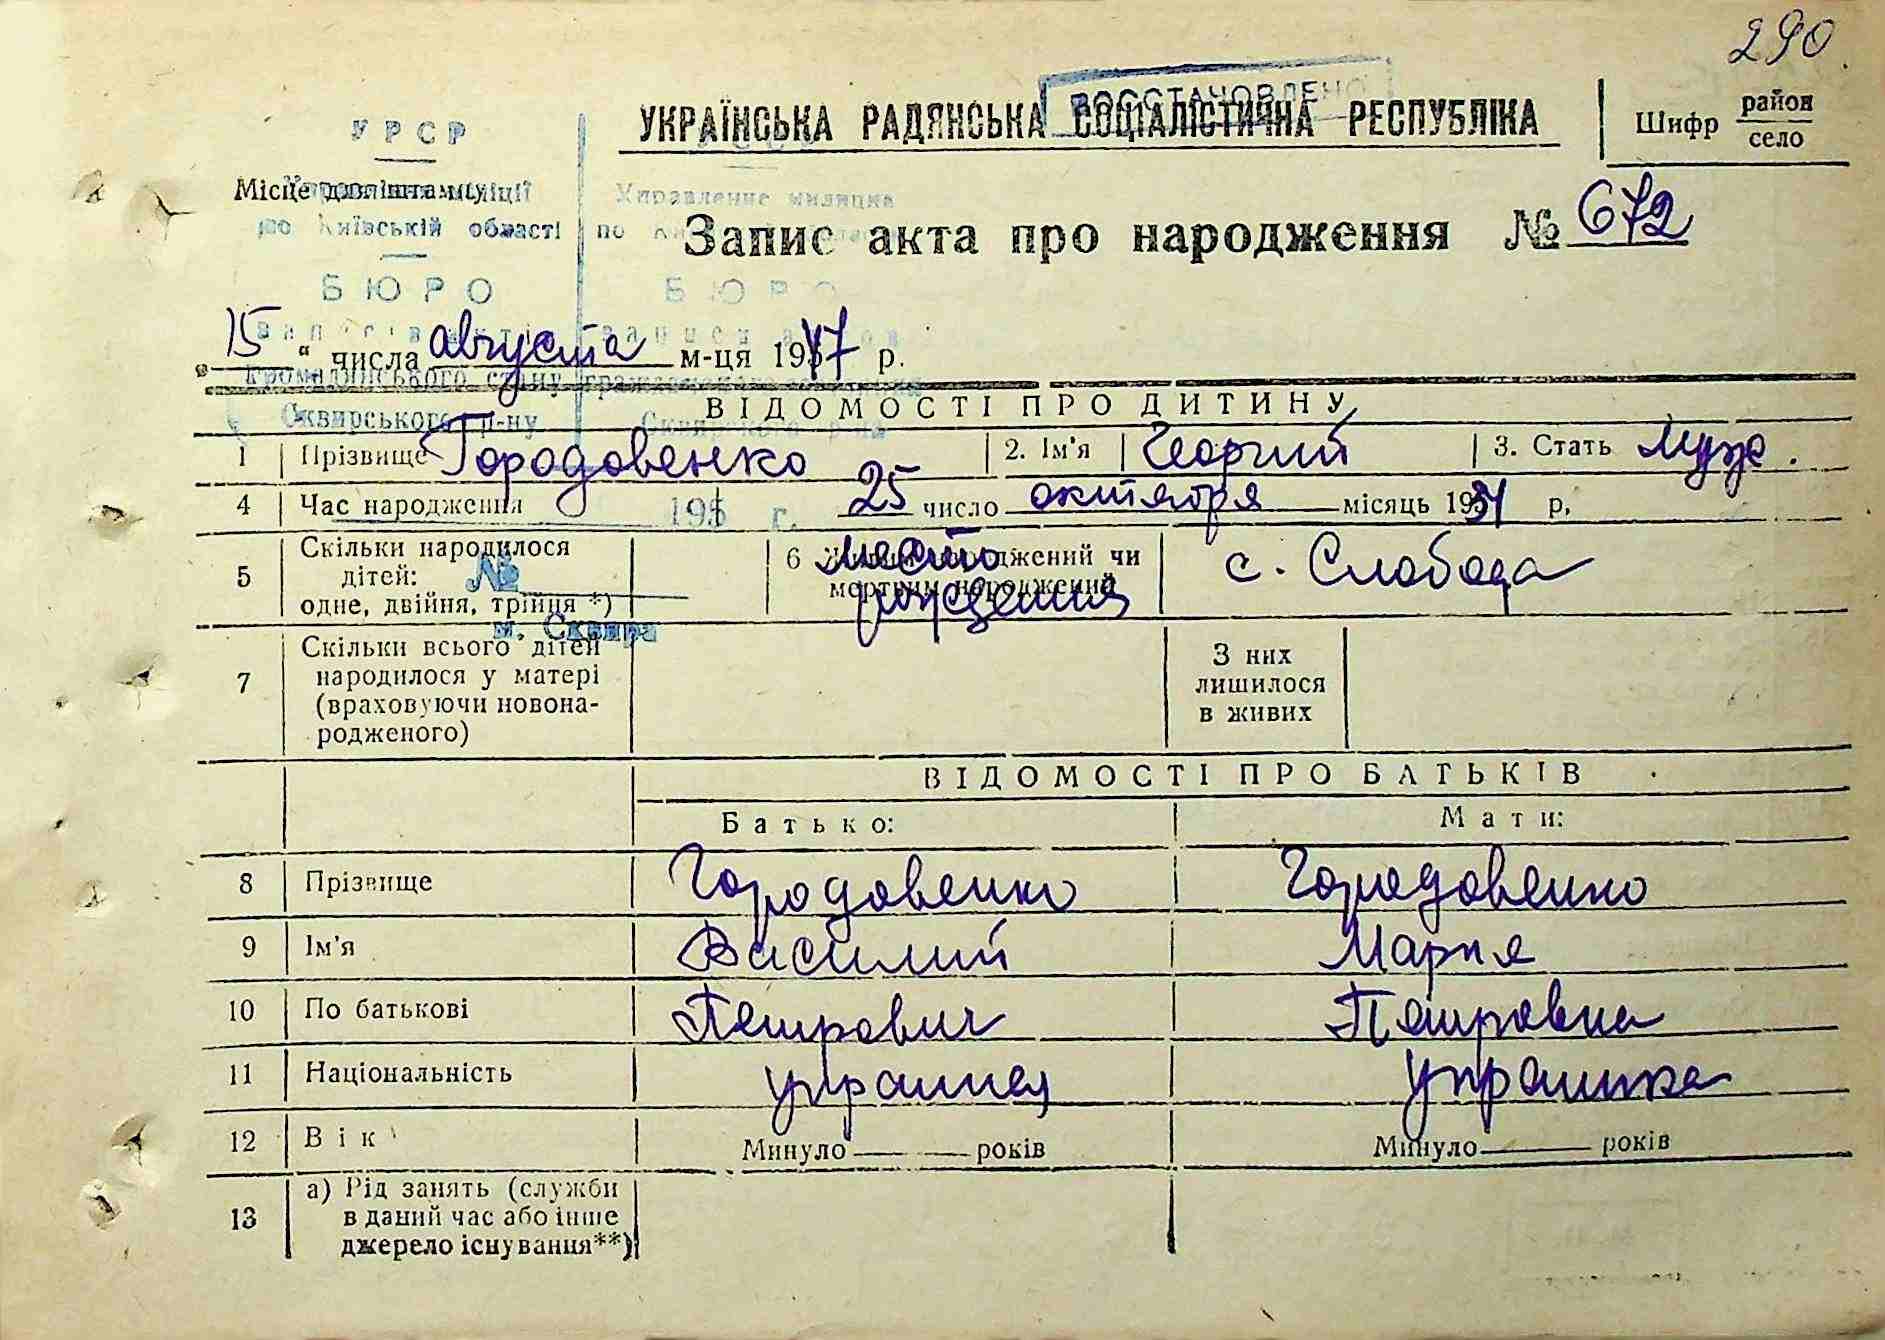 290
ВОССТАНОВЛЕНО
УКРАЇНСЬКА РАДЯНСЬКА СОЦІАЛІСТИЧНА РЕСПУБЛІКА
Шифр район
село
УРСР
Місце для штампу
Управління міліції
Управление милиции
по Київській області по
Запис акта про народження № 672
БЮРО БЮРО
„15“ числа августа м-ця 1947 р.
громадянського стану гражданского
ВІДОМОСТІ ПРО ДИТИНУ
Сквирського р-ну Сквирского р-на
1 Прізвище Городовенко 2. Ім'я Георгий 3. Стать муж.
4 Час народження 195 г. 25 число октября місяць 1931 р.
5 Скільки народилося дітей: одне, двійня, трійня *)
№
м. Сквира
6 Живим народжений чи мертвим народжений
место рождения
с. Слобода
7 Скільки всього дітей народилося у матері (враховуючи новона-
родженого)
З них лишилося в живих
ВІДОМОСТІ ПРО БАТЬКІВ
Батько: Мати:
8 Прізвище Городовенко Городовенко
9 Ім'я Василий Мария
10 По батькові Петрович Петровна
11 Національність украинец украинка
12 Вік Минуло років Минуло років
13 а) Рід занять (служби
в даний час або інше
джерело існування**)